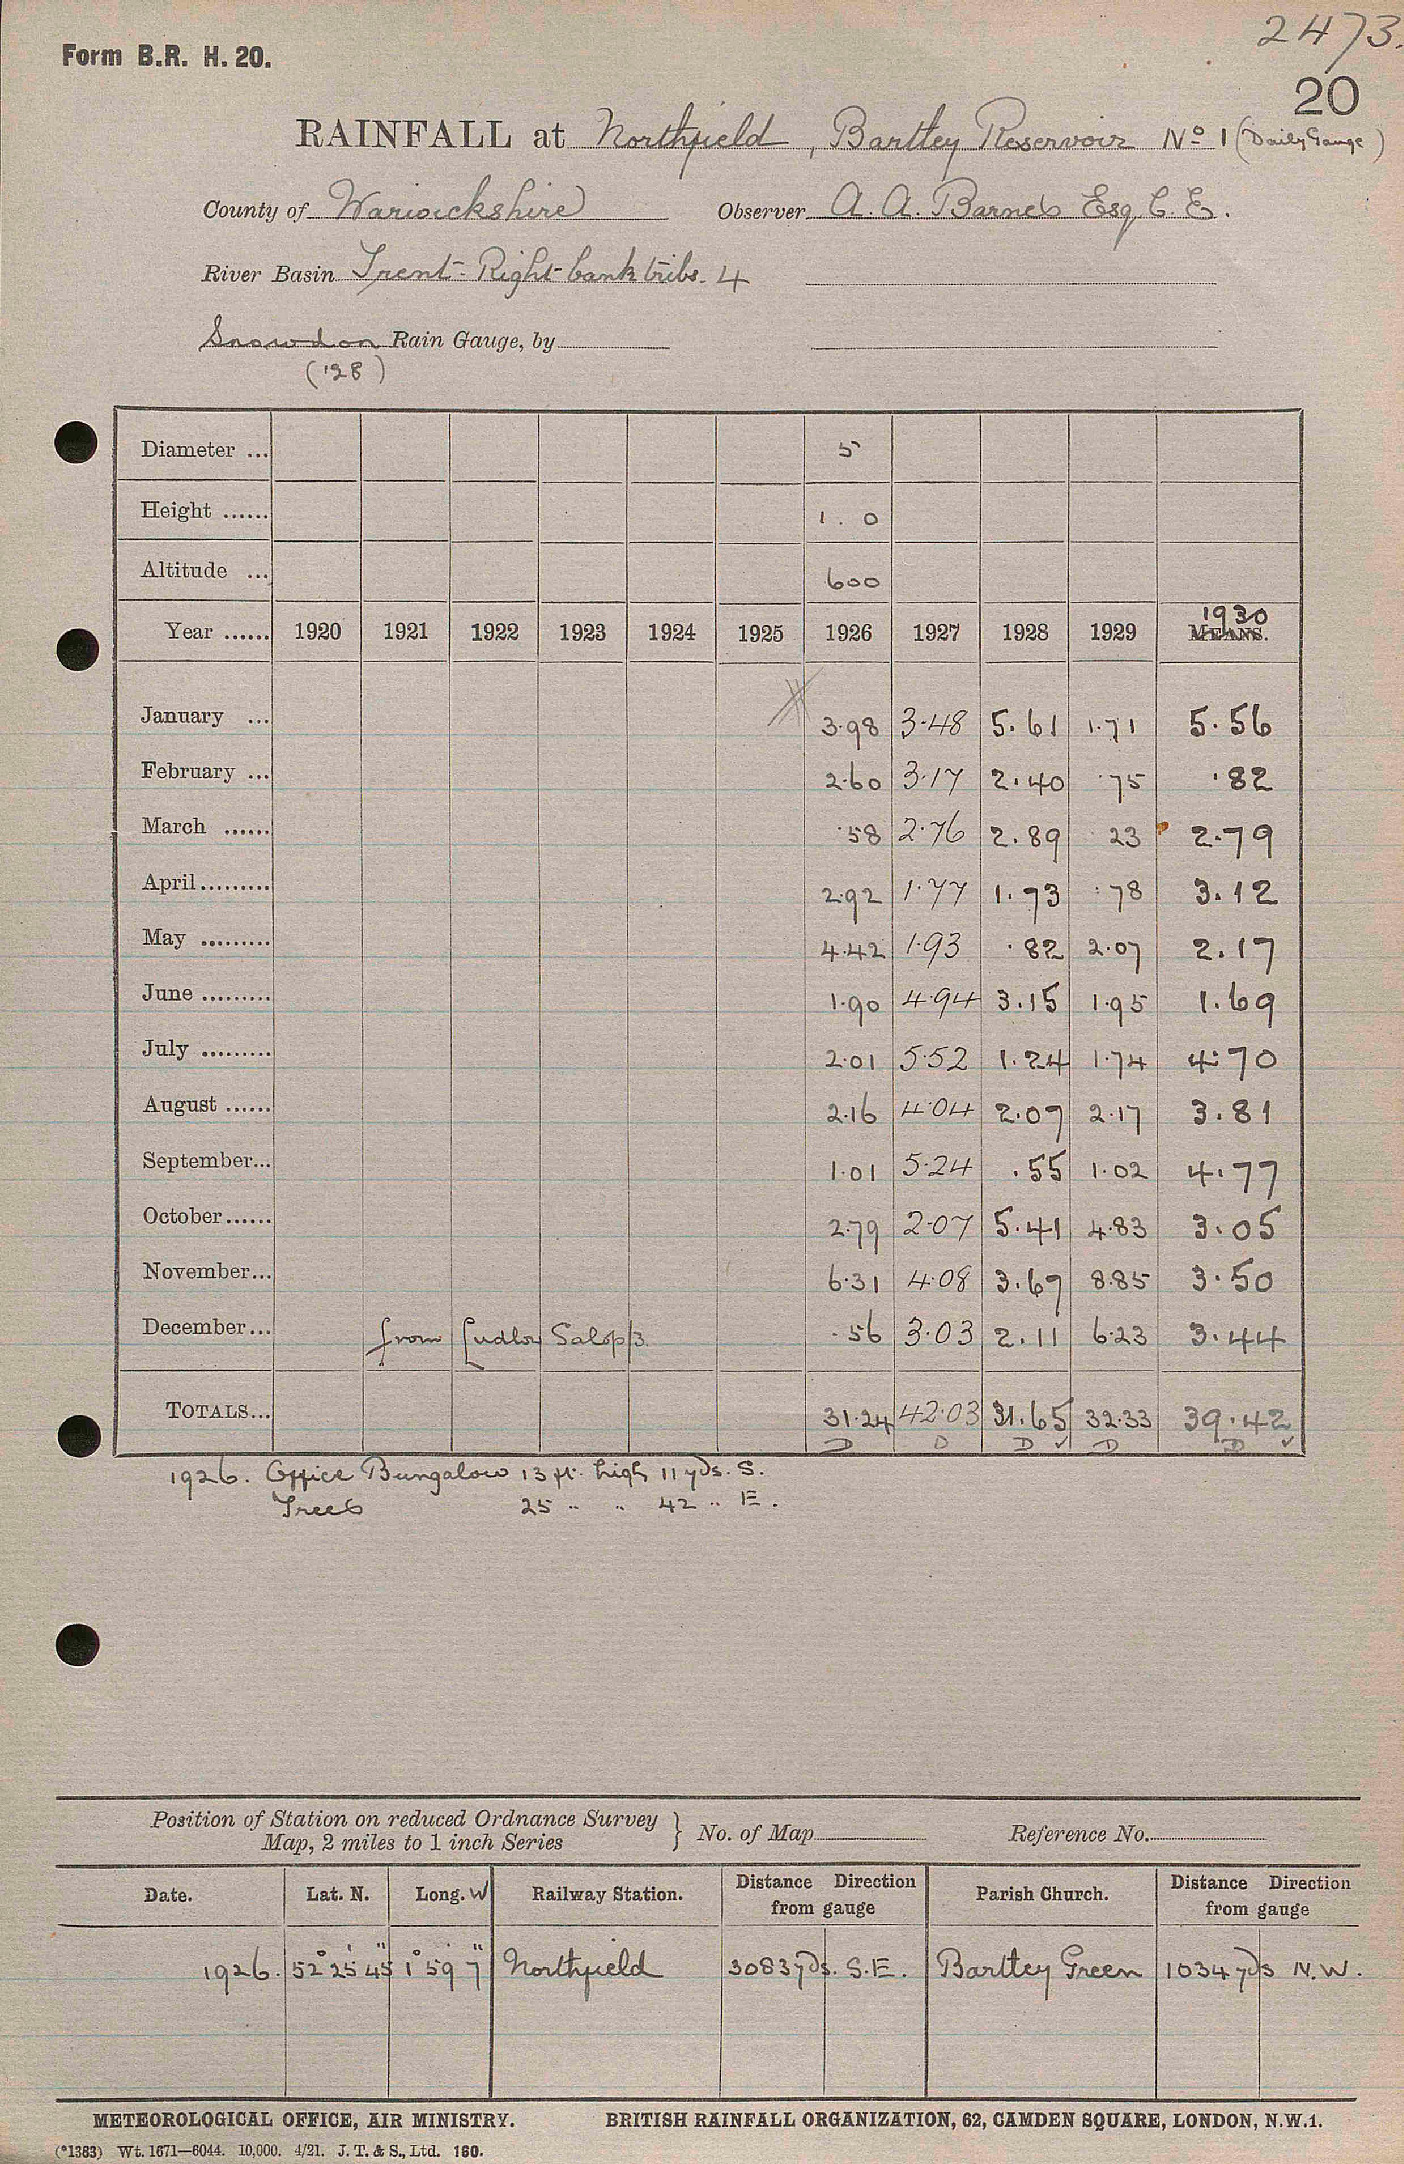 2473.
Form B.R. H. 20.
20
RAINFALL at Northfield, Bartley Reservoir No 1 (Daily Gauge)
County of Warwickshire Observer A. A. Barnes Esq C. E.
River Basin Trent - Right bank tribs. 4
Snowdon Rain Gauge, by
('28)
Diameter ... 5
Height ...... 1.0
Altitude ... 600
Year ...... 1920 1921 1922 1923 1924 1925 1926 1927 1928 1929 1930 MEANS.
January ... 3.98 3.48 5.61 1.71 5.56
February ... 2.60 3.17 2.40 .75 .82
March ...... .58 2.76 2.89 .23 2.79
April ......... 2.92 1.77 1.73 .78 3.12
May ......... 4.42 1.93 .82 2.07 2.17
June ......... 1.90 4.94 3.15 1.95 1.69
July ......... 2.01 5.52 1.24 1.74 4.70
August ...... 2.16 4.04 2.07 2.17 3.81
September... 1.01 5.24 .55 1.02 4.77
October...... 2.79 2.07 5.41 4.83 3.05
November... 6.31 4.08 3.67 8.85 3.50
December... from Ludlow Salop/3. .56 3.03 2.11 6.23 3.44
TOTALS... 31.24 42.03 31.65 32.33 39.42
D D D ✓ D D ✓
1926. Office Bungalow 13 ft. high 11 yds. S.
Trees 25 " " 42 " E.
Position of Station on reduced Ordnance Survey Map, 2 miles to 1 inch Series } No. of Map Reference No.
Date. Lat. N. Long. W Railway Station. Distance Direction from gauge Parish Church. Distance Direction from gauge
1926. 52° 25' 45" 1° 59' 7" Northfield 3083 yds. S.E. Bartley Green 1034 yds N.W.
METEOROLOGICAL OFFICE, AIR MINISTRY. BRITISH RAINFALL ORGANIZATION, 62, CAMDEN SQUARE, LONDON, N.W.1.
(*1383) Wt. 1671—6044. 10,000. 4/21. J. T. & S., Ltd. 160.